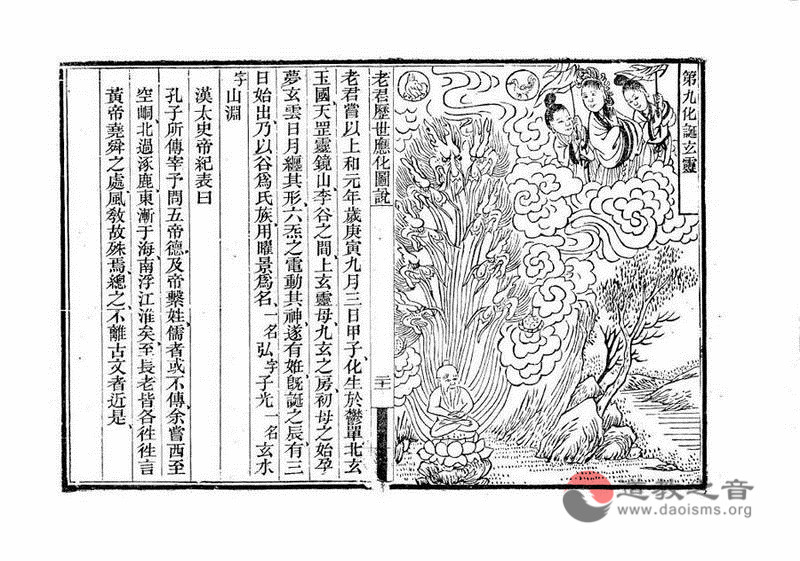 第九化誕玄靈
老君歷世應化圖說
老君嘗以上和元年歲庚寅九月三日甲子化生於鬱單北玄
玉國天罡靈鏡山李谷之間上玄靈母九玄之房初母之始孕
夢玄雲日月纏其形六炁之電動其神遂有姙旣誕之辰有三
日始出乃以谷爲氏族用曜景爲名一名弘字子光一名玄水
字山淵
漢太史帝紀表曰
孔子所傳宰予問五帝德及帝繫姓儒者或不傳余嘗西至
空峒北過涿鹿東漸于海南浮江淮矣至長老皆各徃徃言
黃帝堯舜之處風敎故殊焉總之不離古文者近是
二十
道教之音
www.daoisms.org